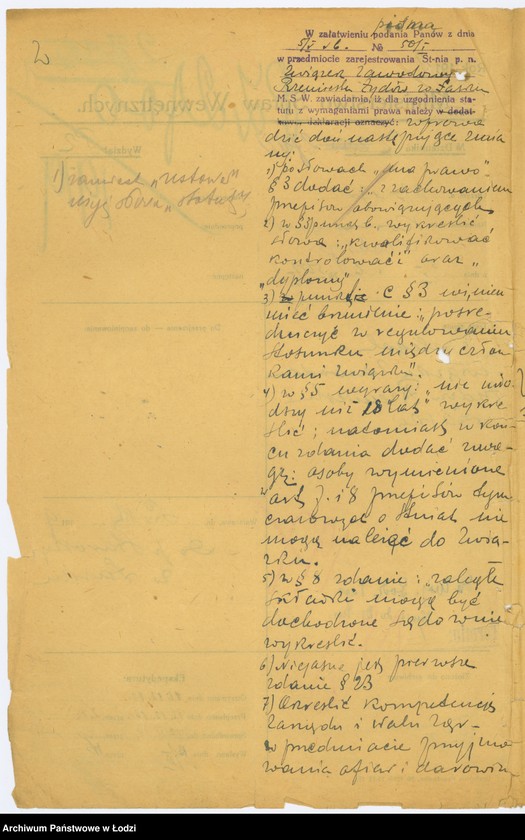 2
pisma
W załatwieniu podania Panów z dnia
5/I 26. № 50/I
w przedmiocie zarejestrowania St-nia p. n.
Związek Zawodowy
Rzemieśln. Żydów w Łasku
M. S. W. zawiadamia, iż dla uzgodnienia sta-
tutu z wymaganiami prawa należy w dodat-
kowej deklaracji oznaczyć: wprowa
dzić doń następujące zmia
ny:
1) po słowach „ma prawo"
§ 3 dodać: „z zachowaniem
przepisów obowiązujących
2) w § 3 punkt b. wykreślić
słowa: „kwalifikować
kontrolować i" oraz „
„dyplomy"
3) punkt c § 3 winien
mieć brzmienie: „pośre-
dniczyć w regulowaniu
stosunku między człon
kami związku".
4) w § 5 wyrazy: „nie mło
dszy niż 18 lat" wykre
ślić; natomiast w koń-
cu zdania dodać uwa-
gę: osoby wymienione
art 7. i 8 przepisów tym
czasowych o stow. nie
mogą należeć do Zwią-
zku.
5) w § 8 zdanie: „zaległe
składki mogą być
dochodzone sądownie
wykreślić.
6) Niejasne jest pierwsze
zdanie § 23
7) Określić kompetencję
Zarządu i Waln. Zgr-
w przedmiocie przyjmo
wania ofiar i darowizn
1) zamiast „ustawa"
użyć słowa „statut"
Archiwum Państwowe w Łodzi